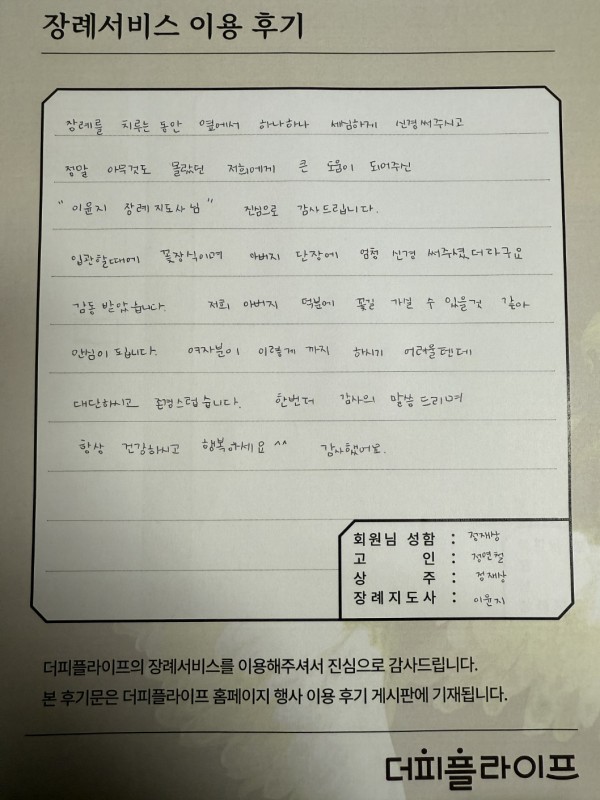 장례서비스 이용 후기
장례를 치루는 동안 옆에서 하나하나 세심하게 신경써주시고
정말 아무것도 몰랐던 저희에게 큰 도움이 되어주신
"이윤지 장례지도사님" 진심으로 감사드립니다.
입관할때에 꽃장식이며 아버지 단장에 엄청 신경 써주셨더라구요
감동 받았습니다. 저희 아버지 덕분에 꽃길 가실 수 있을것 같아
안심이 됩니다. 여자분이 이렇게 까지 하시기 어려울텐데
대단하시고 존경스럽습니다. 한번더 감사의 말씀 드리며
항상 건강하시고 행복하세요 ^^ 감사했어요.
회원님 성함 : 정재상
고 인 : 정연철
상 주 : 정재상
장례지도사 : 이윤지
더피플라이프의 장례서비스를 이용해주셔서 진심으로 감사드립니다.
본 후기문은 더피플라이프 홈페이지 행사 이용 후기 게시판에 기재됩니다.
더피플라이프